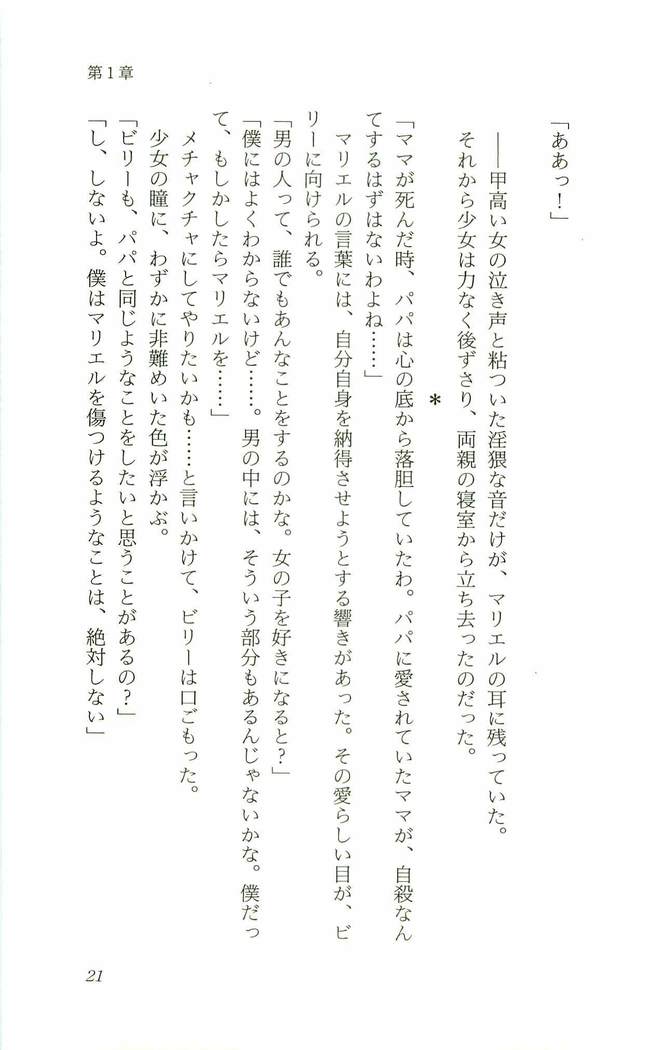 第1章
「ああっ！」
――甲高い女の泣き声と粘ついた淫猥な音だけが、マリエルの耳に残っていた。
それから少女は力なく後ずさり、両親の寝室から立ち去ったのだった。
＊
「ママが死んだ時、パパは心の底から落胆していたわ。パパに愛されていたママが、自殺なん
てするはずはないわよね……」
マリエルの言葉には、自分自身を納得させようとする響きがあった。その愛らしい目が、ビ
リーに向けられる。
「男の人って、誰でもあんなことをするのかな。女の子を好きになると？」
「僕にはよくわからないけど……。男の中には、そういう部分もあるんじゃないかな。僕だっ
て、もしかしたらマリエルを……」
メチャクチャにしてやりたいかも……と言いかけて、ビリーは口ごもった。
少女の瞳に、わずかに非難めいた色が浮かぶ。
「ビリーも、パパと同じようなことをしたいと思うことがあるの？」
「し、しないよ。僕はマリエルを傷つけるようなことは、絶対しない」
21